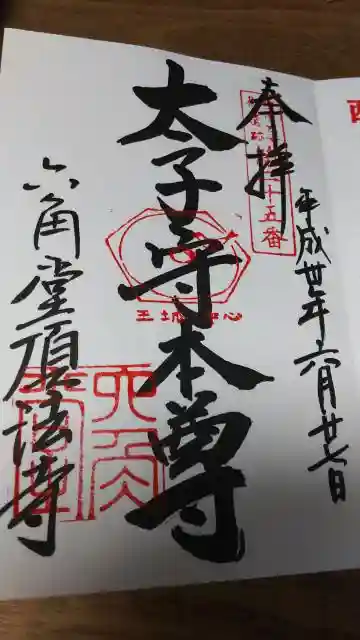 奉拝
十五番
平成卅年六月廿七日
太子守本尊
王城中心
六角堂頂法寺
六角堂